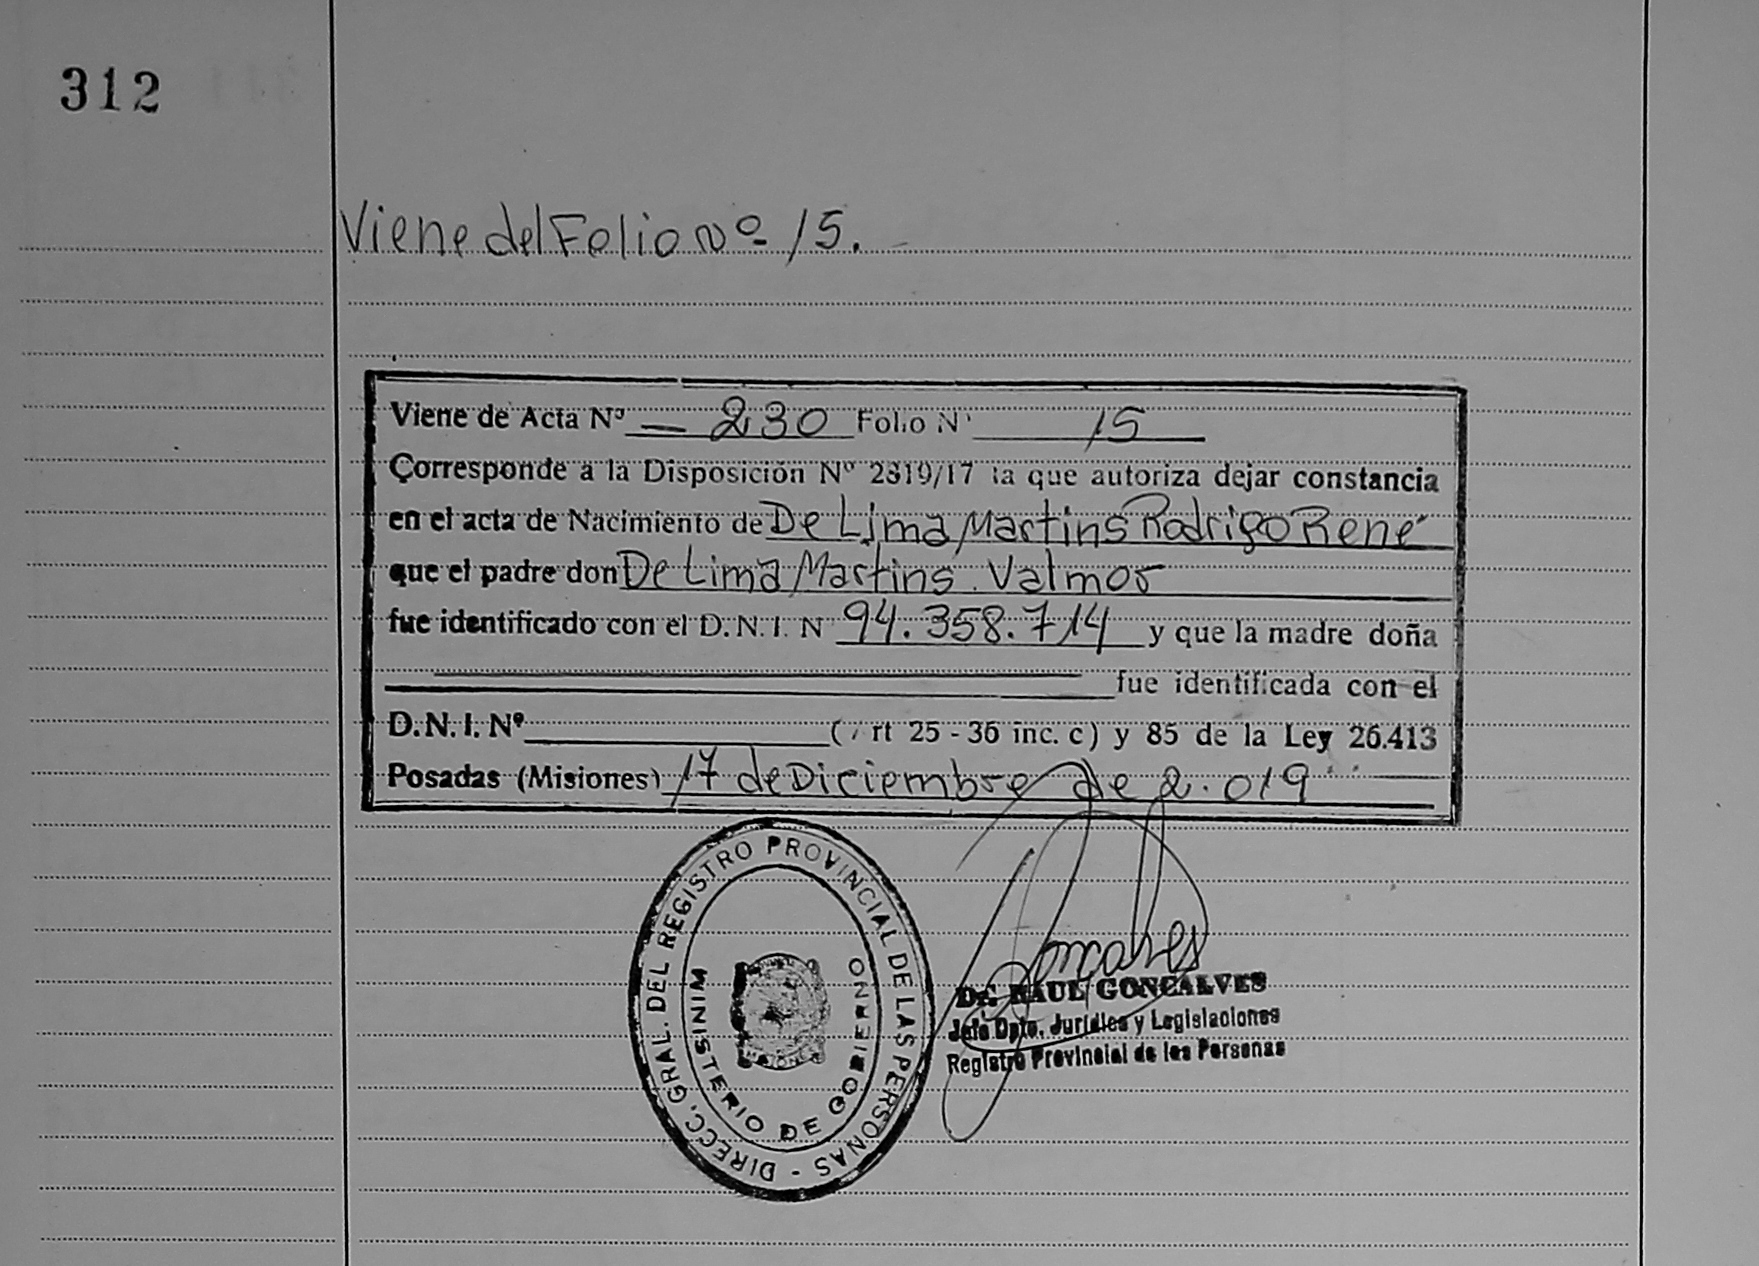 312
Viene del Folio Nº 15.
Viene de Acta Nº 230 Folio Nº 15
Corresponde a la Disposición Nº 2319/17 la que autoriza dejar constancia
en el acta de Nacimiento de De Lima Martins Rodrigo Rene
que el padre don De Lima Martins Valmor
fue identificado con el D.N.I. N 94.358.714 y que la madre doña
fue identificada con el
D.N.I. Nº ( rt 25 - 36 inc. c) y 85 de la Ley 26.413
Posadas (Misiones) 17 de Diciembre de 2.019
DIRECC. GRAL. DEL REGISTRO PROVINCIAL DE LAS PERSONAS -
MINISTERIO DE GOBIERNO
Goncalves
Dr. RAUL GONCALVES
Jefe Dpto. Juridica y Legislaciones
Registro Provincial de las Personas